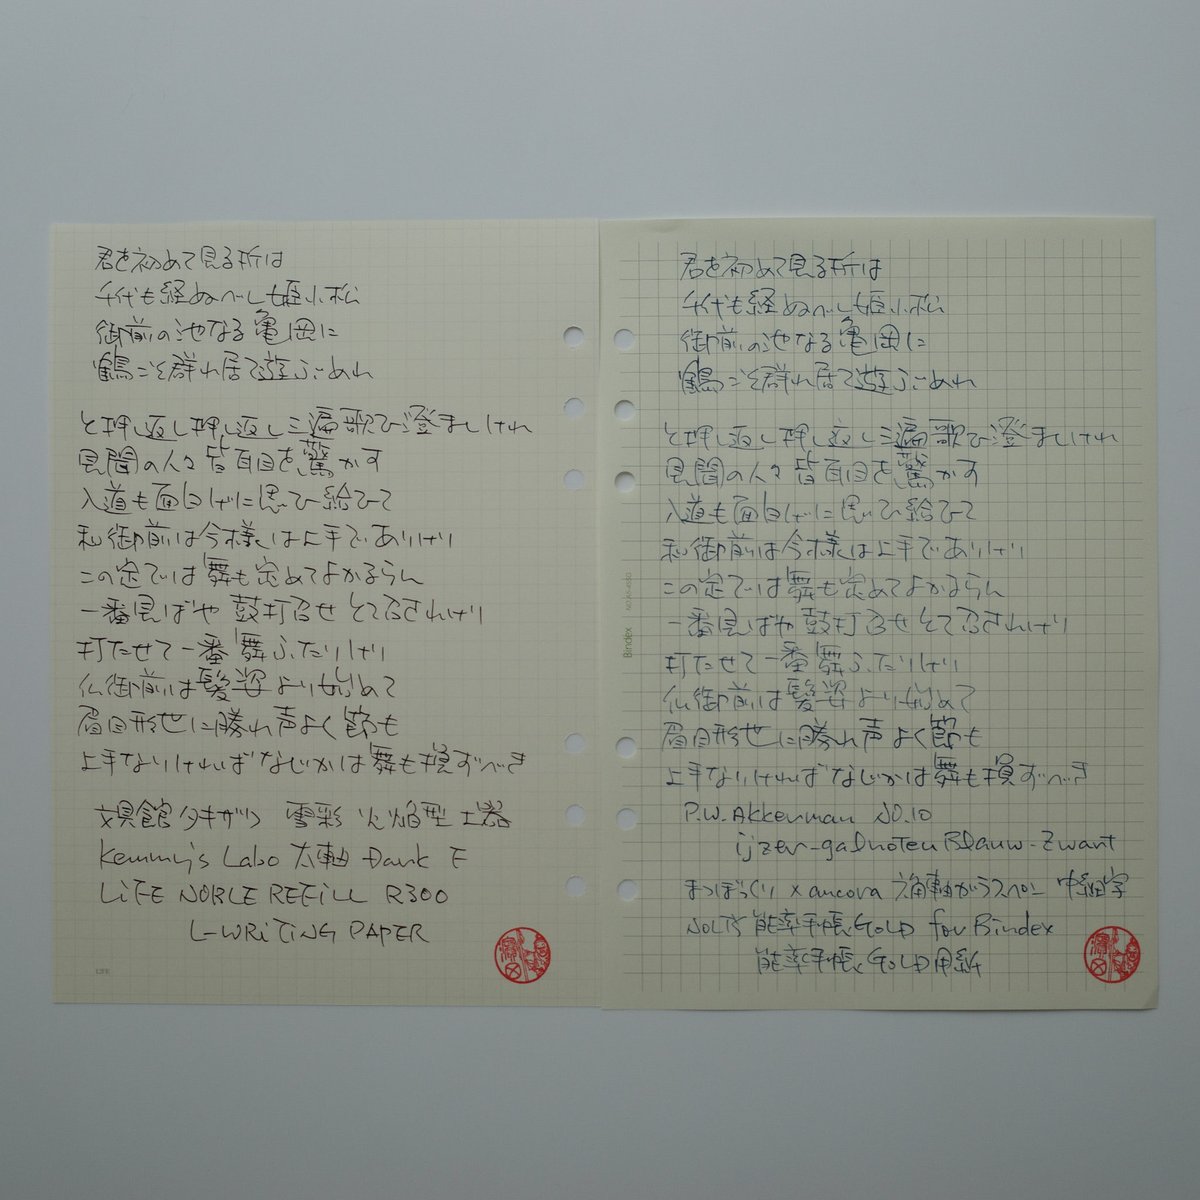 君を初めて見る折は
千代も経ぬべし姫小松
御前の池なる亀岡に
鶴こそ群れ居て遊ぶめれ
と押し返し押し返し三遍歌ひ澄ましければ
見聞の人々皆耳目を驚かす
入道も面白げに思ひ給ひて
和御前は今様は上手でありけり
この定では舞も定めてよかるらん
一番見ばや 鼓打召せ とて召されけり
打たせて一番舞ふたりけり
仏御前は髪姿より始めて
眉目形世に勝れ声よく節も
上手なりければなじかは舞も損ずべき
文具館タキザワ 雪彩 火焔型土器
Kemmy's Labo 太軸 Dark F
LIFE NOBLE REFILL R300
L-WRITING PAPER
LIFE
君を初めて見る折は
千代も経ぬべし姫小松
御前の池なる亀岡に
鶴こそ群れ居て遊ぶめれ
と押し返し押し返し三遍歌ひ澄ましければ
見聞の人々皆耳目を驚かす
入道も面白げに思ひ給ひて
和御前は今様は上手でありけり
この定では舞も定めてよかるらん
一番見ばや 鼓打召せ とて召されけり
打たせて一番舞ふたりけり
仏御前は髪姿より始めて
眉目形世に勝れ声よく節も
上手なりければなじかは舞も損ずべき
P.W. Akkerman No.10
ijzer-galnoten Blauw-Zwart
まつぼっくり × ancora 六角軸ガラスペン 中細字
NOLTY 能率手帳GOLD for Bindex
能率手帳GOLD用紙
Bindex